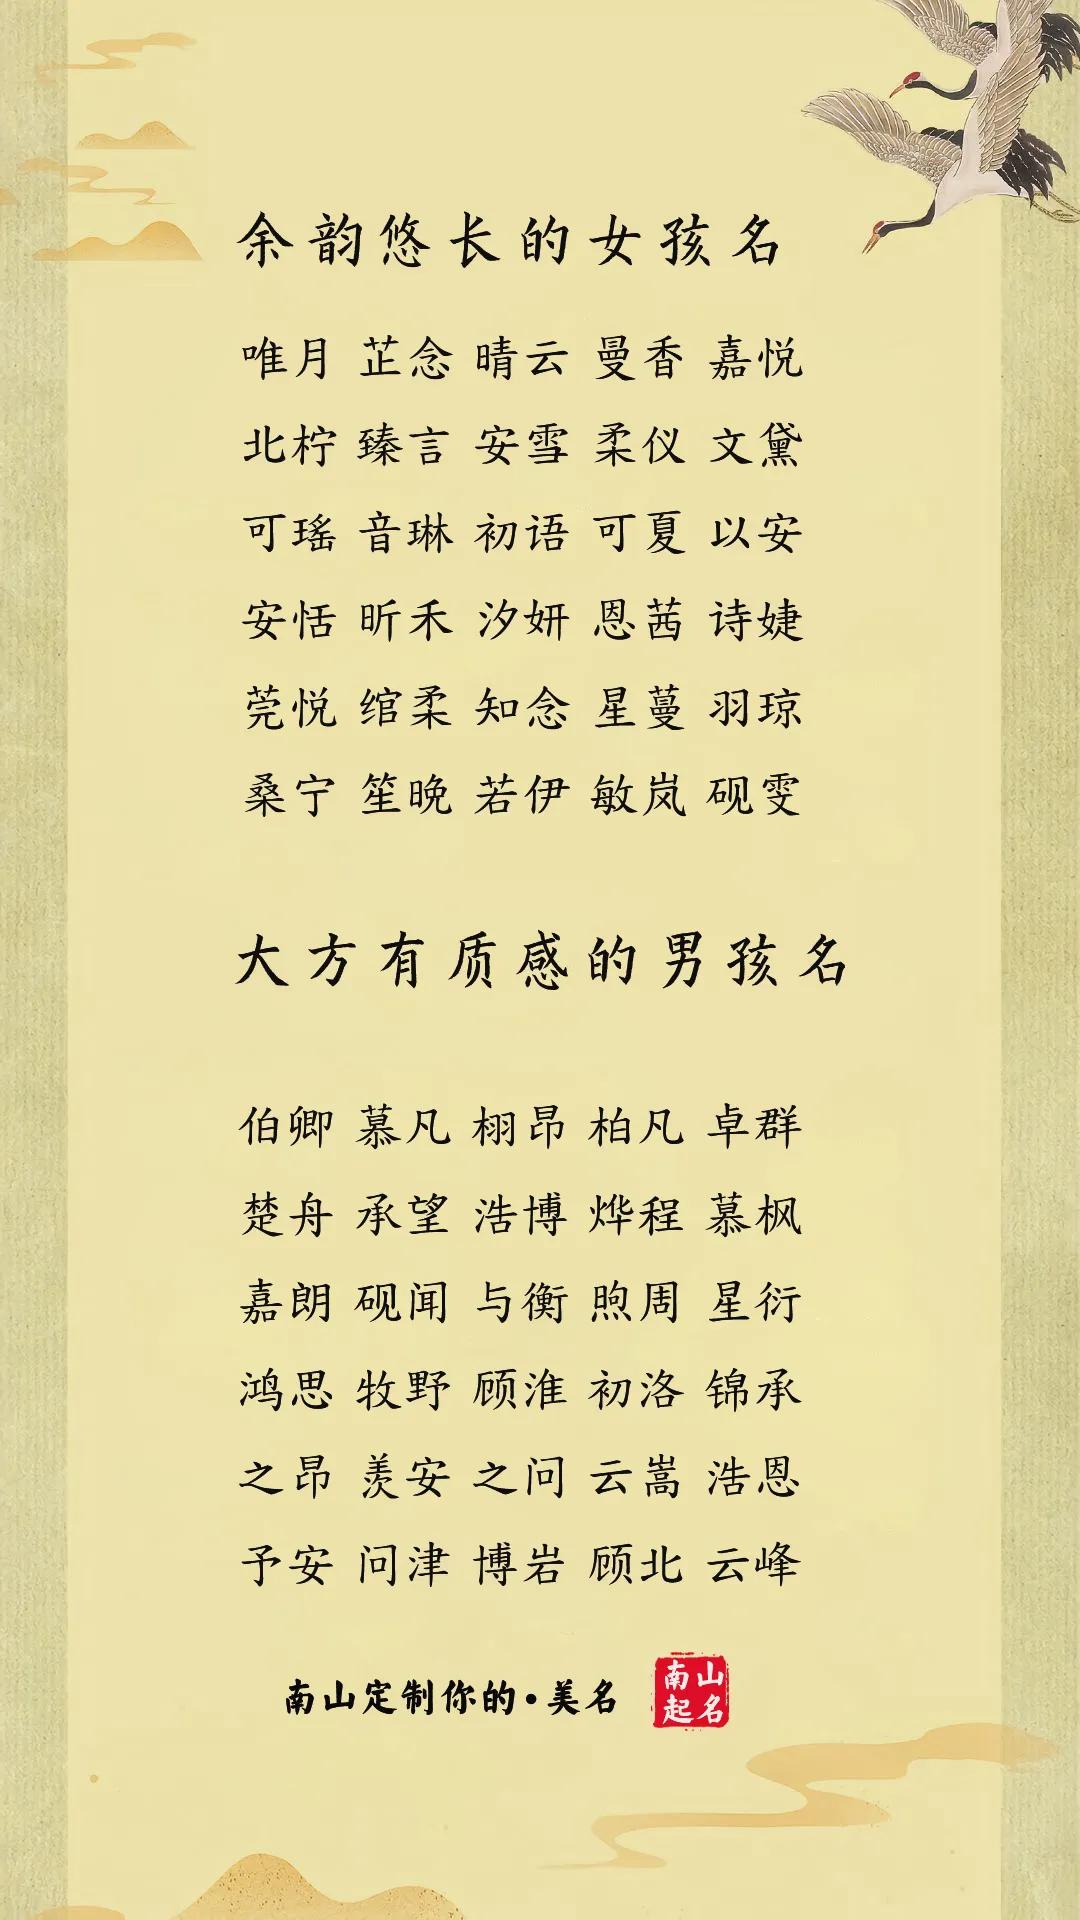 余韵悠长的女孩名
唯月 芷念 晴云 曼香 嘉悦
北柠 臻言 安雪 柔仪 文黛
可瑶 音琳 初语 可夏 以安
安恬 昕禾 汐妍 恩茜 诗婕
莞悦 绾柔 知念 星蔓 羽琼
桑宁 笙晚 若伊 敏岚 砚雯
大方有质感的男孩名
伯卿 慕凡 栩昂 柏凡 卓群
楚舟 承望 浩博 烨程 慕枫
嘉朗 砚闻 与衡 煦周 星衍
鸿思 牧野 顾淮 初洛 锦承
之昂 羡安 之问 云嵩 浩恩
予安 问津 博岩 顾北 云峰
南山定制你的·美名
南山
起名